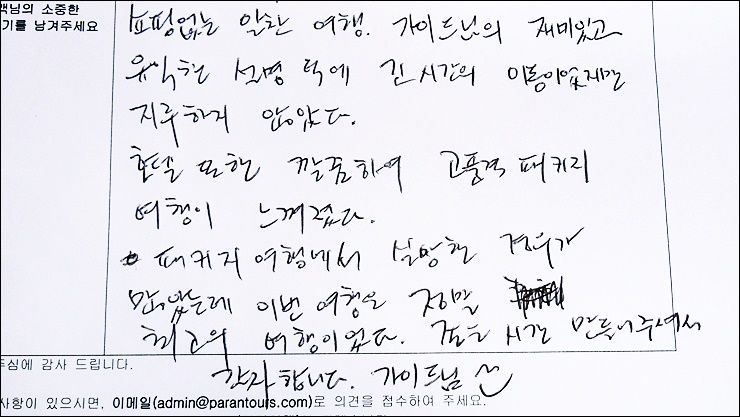 객님의 소중한
기를 남겨주세요
쇼핑없는 알찬 여행. 가이드님의 재미있고
유익한 설명 덕에 긴 시간의 이동이었지만
지루하지 않았다.
호텔 또한 깔끔하여 고품격 패키지
여행이 느껴졌다.
패키지 여행에서 실망한 경우가
많았는데 이번 여행은 정말
최고의 여행이었다. 좋은 시간 만들어주셔서
감사합니다. 가이드님
주심에 감사 드립니다.
사항이 있으시면, 이메일(admin@parantours.com)로 의견을 접수하여 주세요.